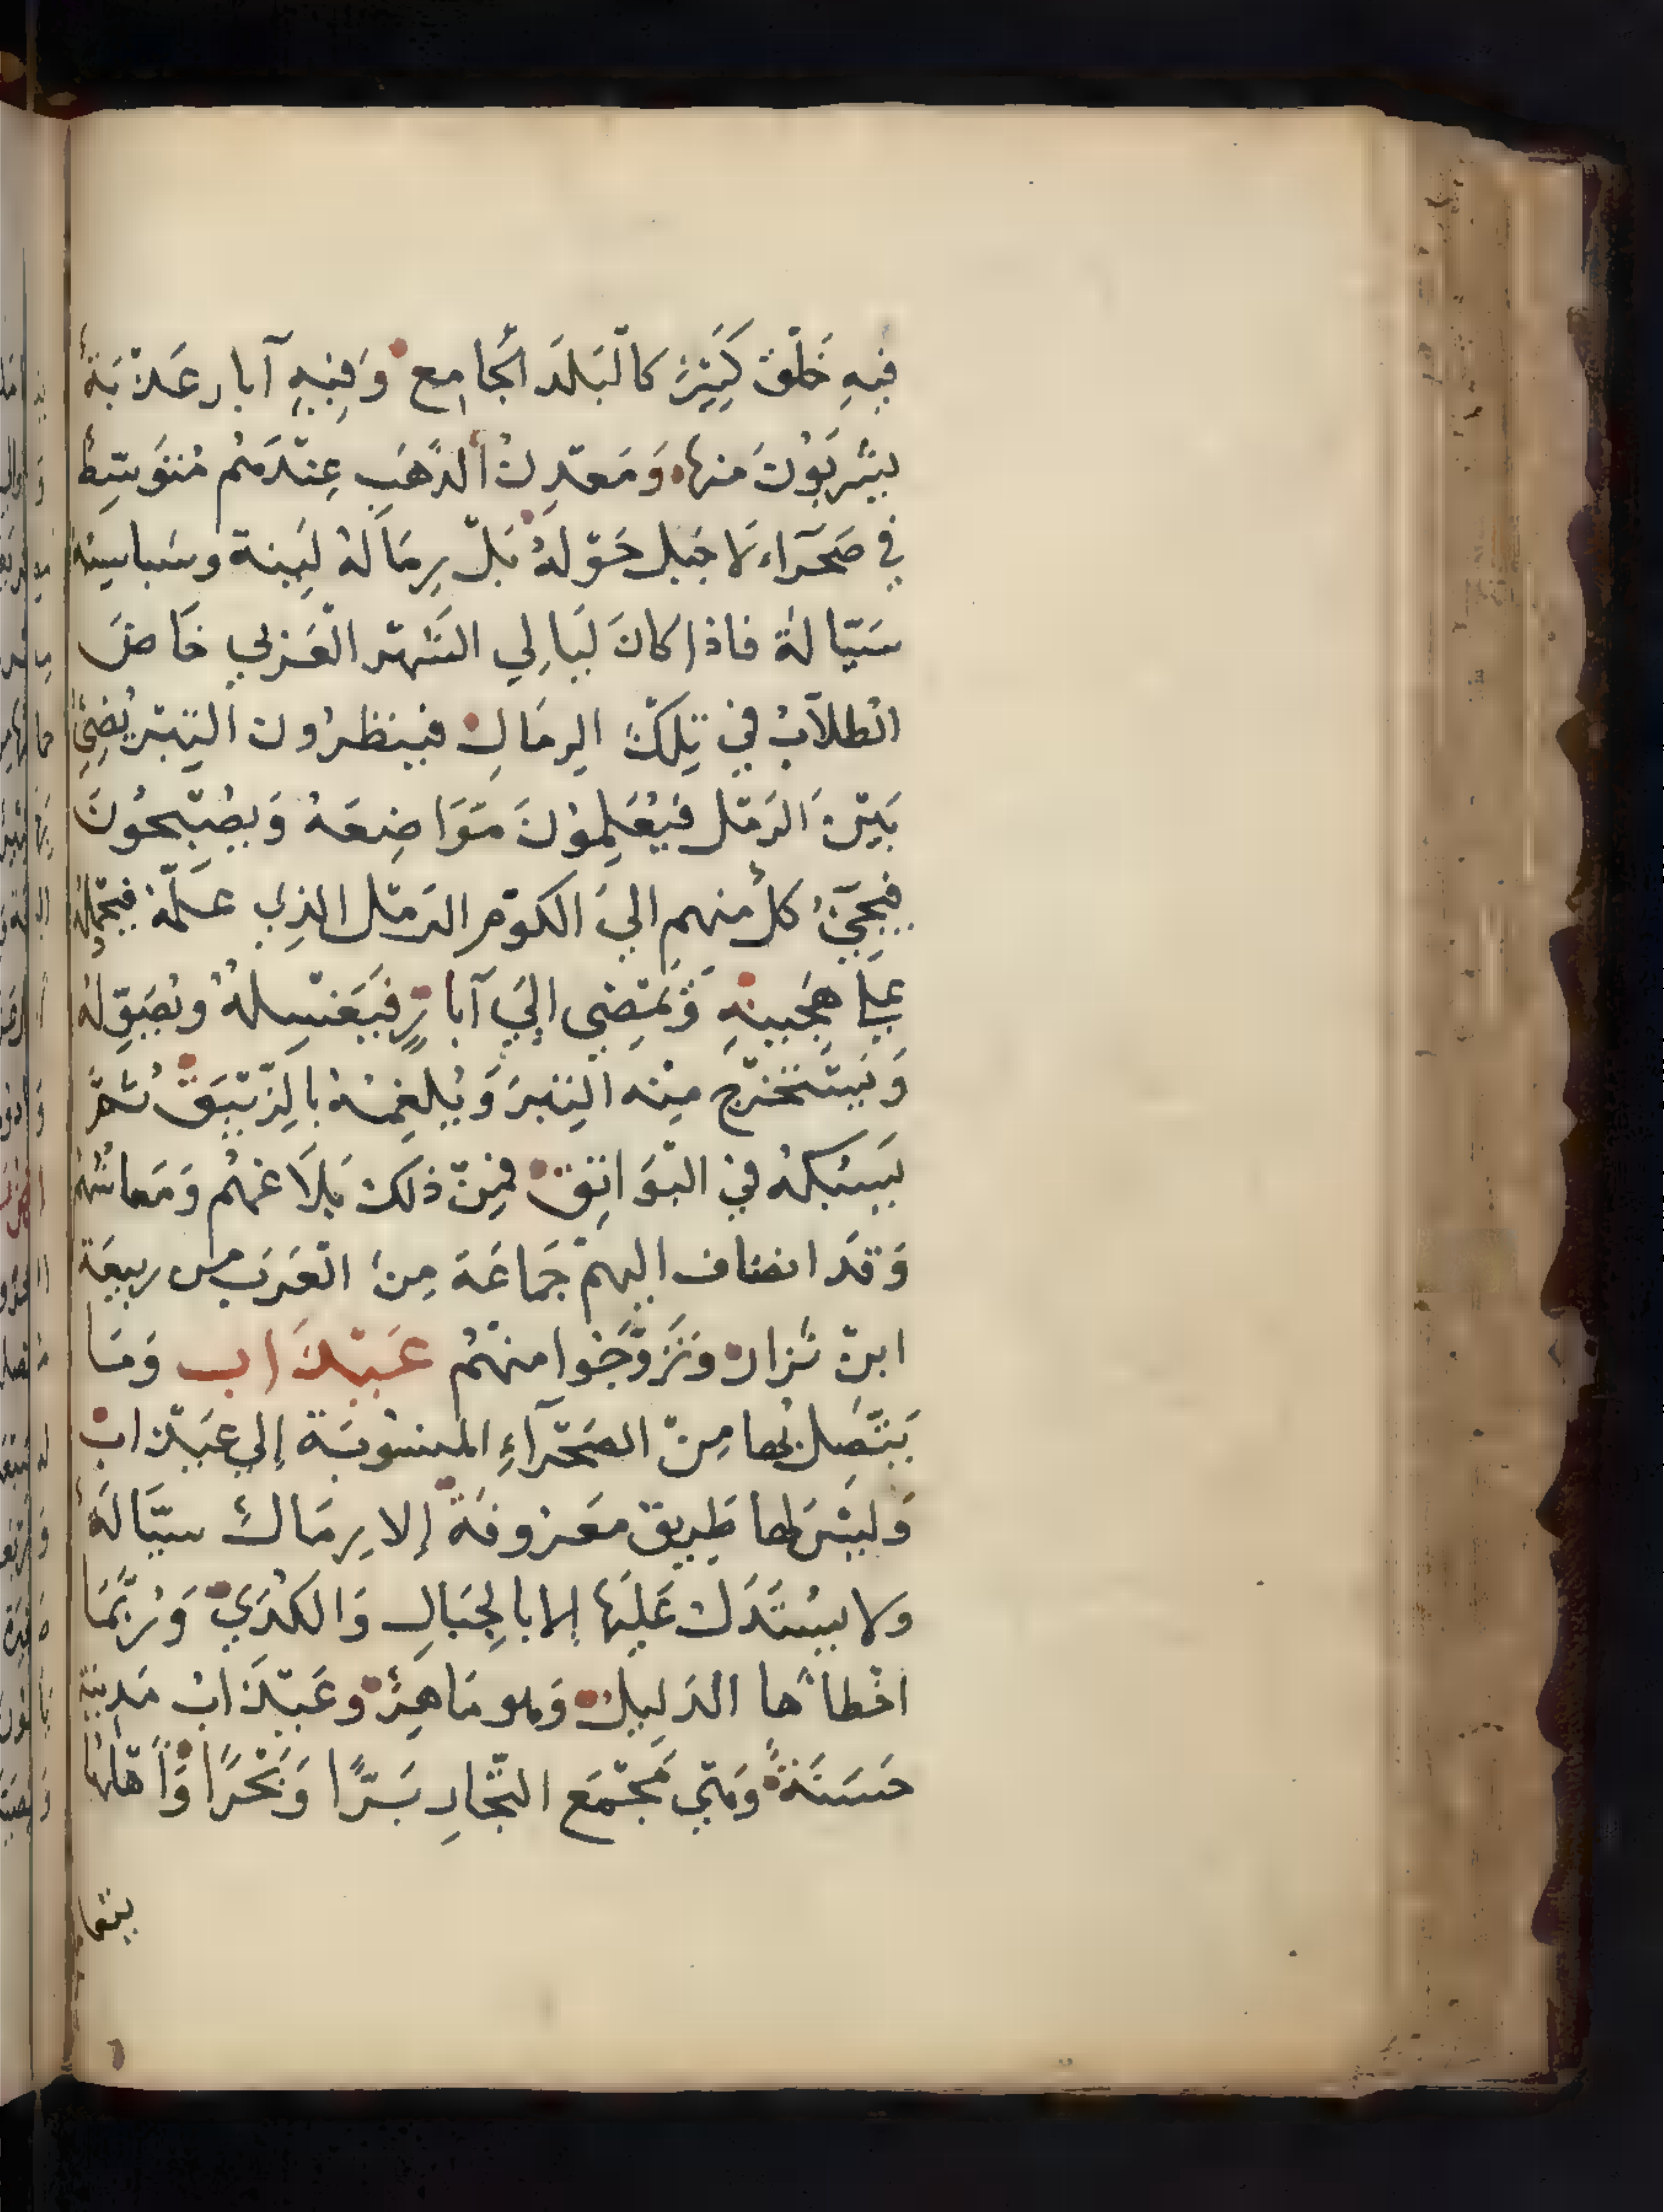 فِيهِ خَلْق كَثِيرٌ كَالْبَلَدِ الْجَامِع وَفِيهِ آبار عَذْبَةٌ
يَشْرَبُونَ منها وَمَعْدِنُ الذَّهَبِ عِنْدَهُم مُتَوَسِّطٌ
في صَحَرَاء لَا جَبَل حَوْلَهُ بَلْ رِمَالهُ لَيِّنة وسَباسِبَهُ
سَيّالةٌ فاذا كانَ لَيَالِي الشَهْر الْعَرَبي خَاضَ
الطلاّبُ في تِلكَ الرمَالِ فينظرُون التِبْر يُضِيُّ
بَيْنَ الرَمْل فيُعَلِمُونَ مَوَاضِعَهُ وَيصْبِحُونَ
فيجِيُّ كلٌ منهم اليَ الكوْم الرَمْل الذِي عَلَّمهُ فيَحْمِلهُ
علىَ هَجِينهِ وَيَمْضِي إليَ آبارٍ فَيَغْسِلهُ ويُصَوِّلهُ
وَيَسْتَخْرِج مِنْه التِبْرَ وَيُلغِمُهُ بالزَّيْبَقْ ثُمَّ
يَسْبكهُ في البْوَاتِق فمِنْ ذلكَ بَلَاغهُم وَمَعاشُهُم
وَقَدَ انضاف اليهِمْ جَمَاعَة مِنَ الْعَرَب من ربيعَة
ابنْ نَزار وَتَزَوَّجُوا منهُم عَيْذَاب وَمَا
يَتَّصِل بها مِنْ الصَحْرآءِ المنسُوبَة إلي عَيْذابْ
وَليسَ لها طَرِيق مَعْروفَة إلا رِمَالٌ سَيَّالَةٌ
ولا يسْتَدَلُ عَليَهَا إلا بالجِبَالِ وَالكُدَيْ وَرُبَّمَا
اخْطاهَا الدَليِلُ وَهو مَاهِرٌ وعَيْذَابْ مَدِينة
حَسَنَةٌ وَهيَ مَجْمَع التُّجَارِ بَرًّا وَبَحْرًا وَأَهْلهَا